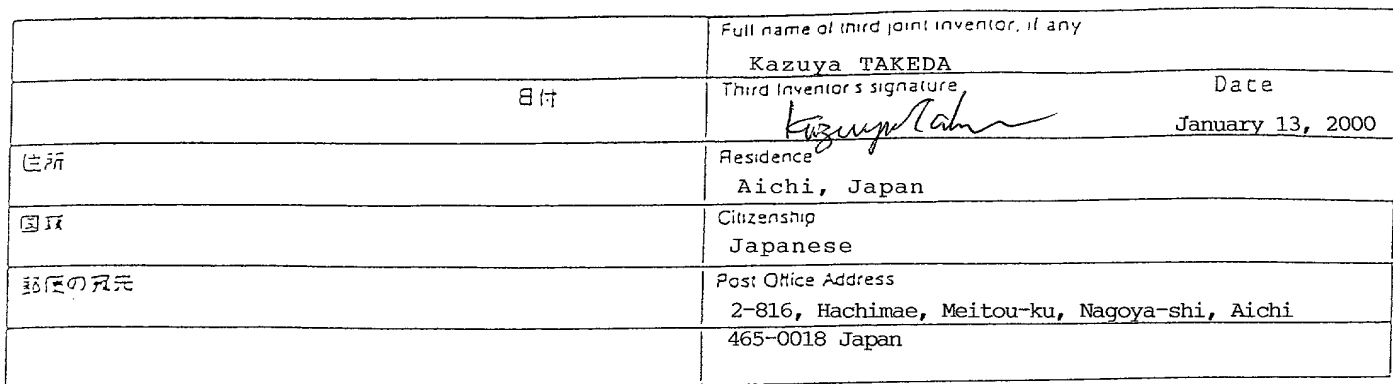 Full name of third joint inventor, if any
Kazuya TAKEDA
日付
Third Inventor's signature
Date
January 13, 2000
住所
Residence
Aichi, Japan
国籍
Citizenship
Japanese
郵便の宛先
Post Office Address
2-816, Hachimae, Meitou-ku, Nagoya-shi, Aichi
465-0018 Japan